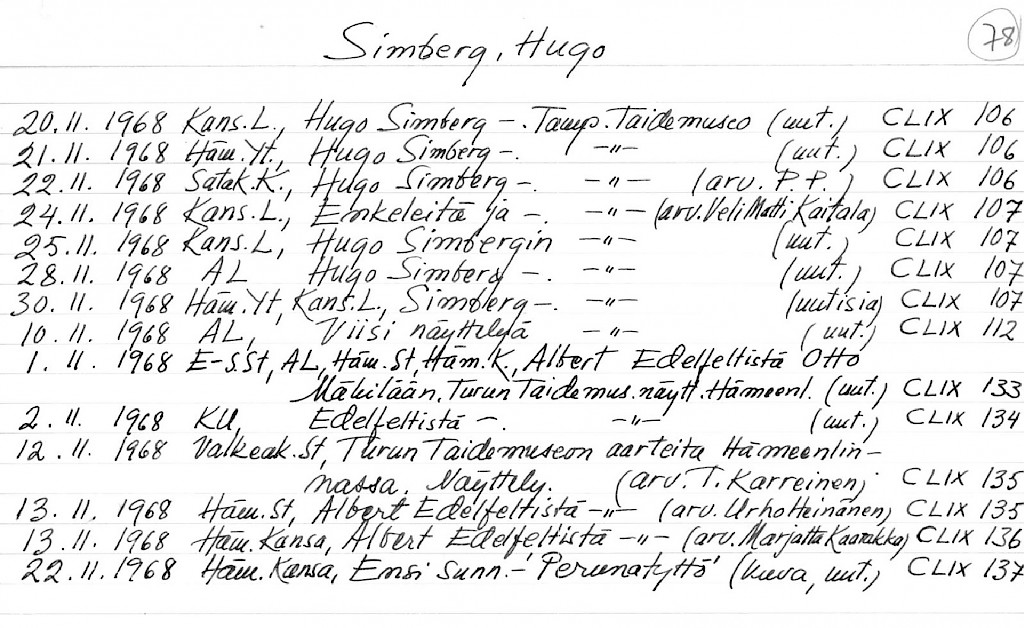 Simberg, Hugo
78
20.11. 1968 Kans.L., Hugo Simberg -. Tamp. Taidemuseo (uut.) CLIX 106
21.11. 1968 Häm.Yt., Hugo Simberg -. -"- (uut.) CLIX 106
22.11. 1968 Satak.K., Hugo Simberg -. -"- (arv. P.P.) CLIX 106
24.11. 1968 Kans.L., Enkeleitä ja -. -"- (arv. Veli Matti Kaitala) CLIX 107
25.11. 1968 Kans.L, Hugo Simbergin -"- (uut.) CLIX 107
28.11. 1968 AL Hugo Simberg -. -"- (uut.) CLIX 107
30.11. 1968 Häm.Yt, Kans.L., Simberg -. -"- (uutisia) CLIX 107
10.11. 1968 AL, Viisi näyttelyä -"- (uut.) CLIX 112
1.11. 1968 E-S.St, AL, Häm.St, Häm.K., Albert Edelfeltistä Otto
Mäkilään, Turun Taidemus. näytt. Hämeenl. (uut.) CLIX 133
2.11. 1968 KU, Edelfeltistä -. -"- (uut.) CLIX 134
12.11. 1968 Valkeak.St, Turun Taidemuseon aarteita Hämeenlin-
nassa. Näyttely. (arv. T. Karreinen) CLIX 135
13.11. 1968 Häm.St, Albert Edelfeltistä -"- (arv. Urho Heinänen) CLIX 135
13.11. 1968 Häm.Kansa, Albert Edelfeltistä -"- (arv. Marjatta Kaarakka) CLIX 136
22.11.1968 Häm.Kansa, Ensi sunn. - 'Perunatyttö' (kuva, uut.) CLIX 137